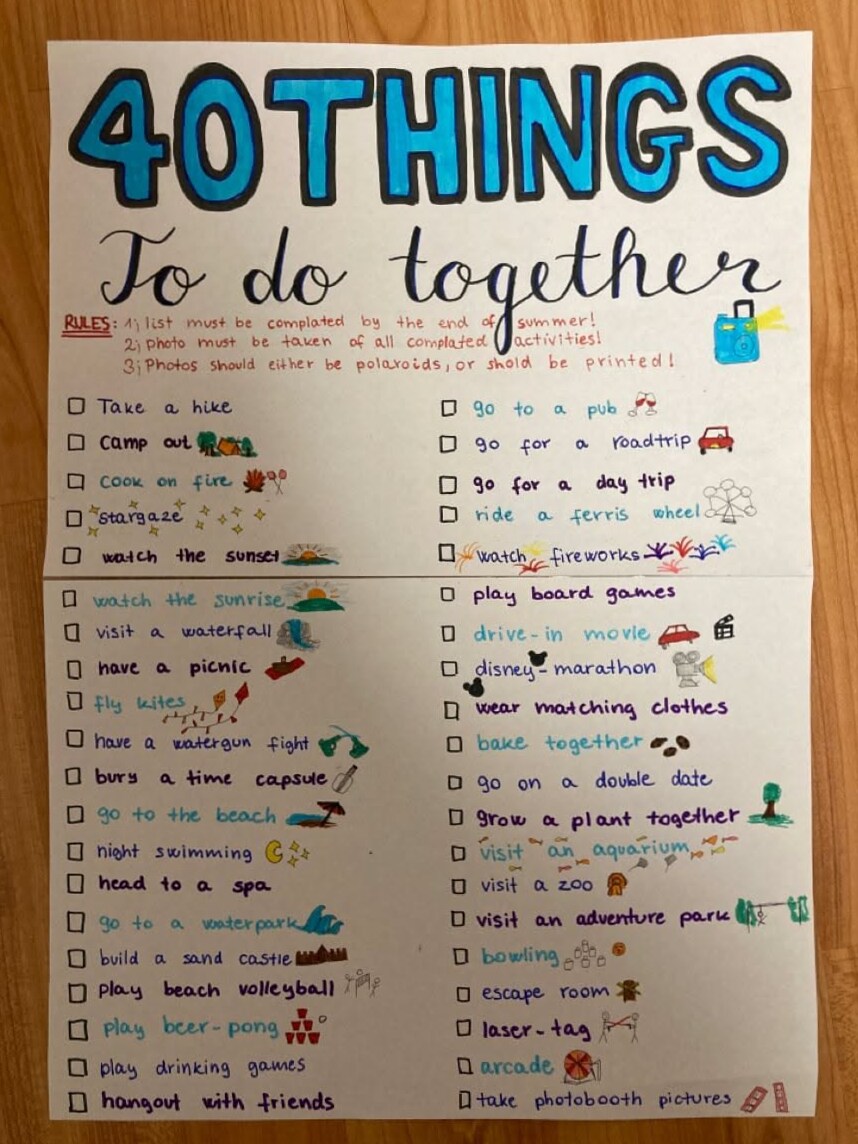 40 THINGS
To do together
RULES: 1; list must be complated by the end of summer!
2; Photo must be taken of all complated activities!
3; Photos should either be polaroids, or shold be printed!
Take a hike
camp out
cook on fire
stargaze
watch the sunset
watch the sunrise
visit a waterfall
have a picnic
fly kites
have a watergun fight
bury a time capsule
go to the beach
night swimming
head to a spa
go to a waterpark
build a sand castle
play beach volleyball
play beer-pong
play drinking games
hangout with friends
go to a pub
go for a roadtrip
go for a day trip
ride a ferris wheel
watch fireworks
play board games
drive-in movie
disney-marathon
wear matching clothes
bake together
go on a double date
grow a plant together
visit an aquarium
visit a zoo
visit an adventure park
bowling
escape room
laser-tag
arcade
take photobooth pictures